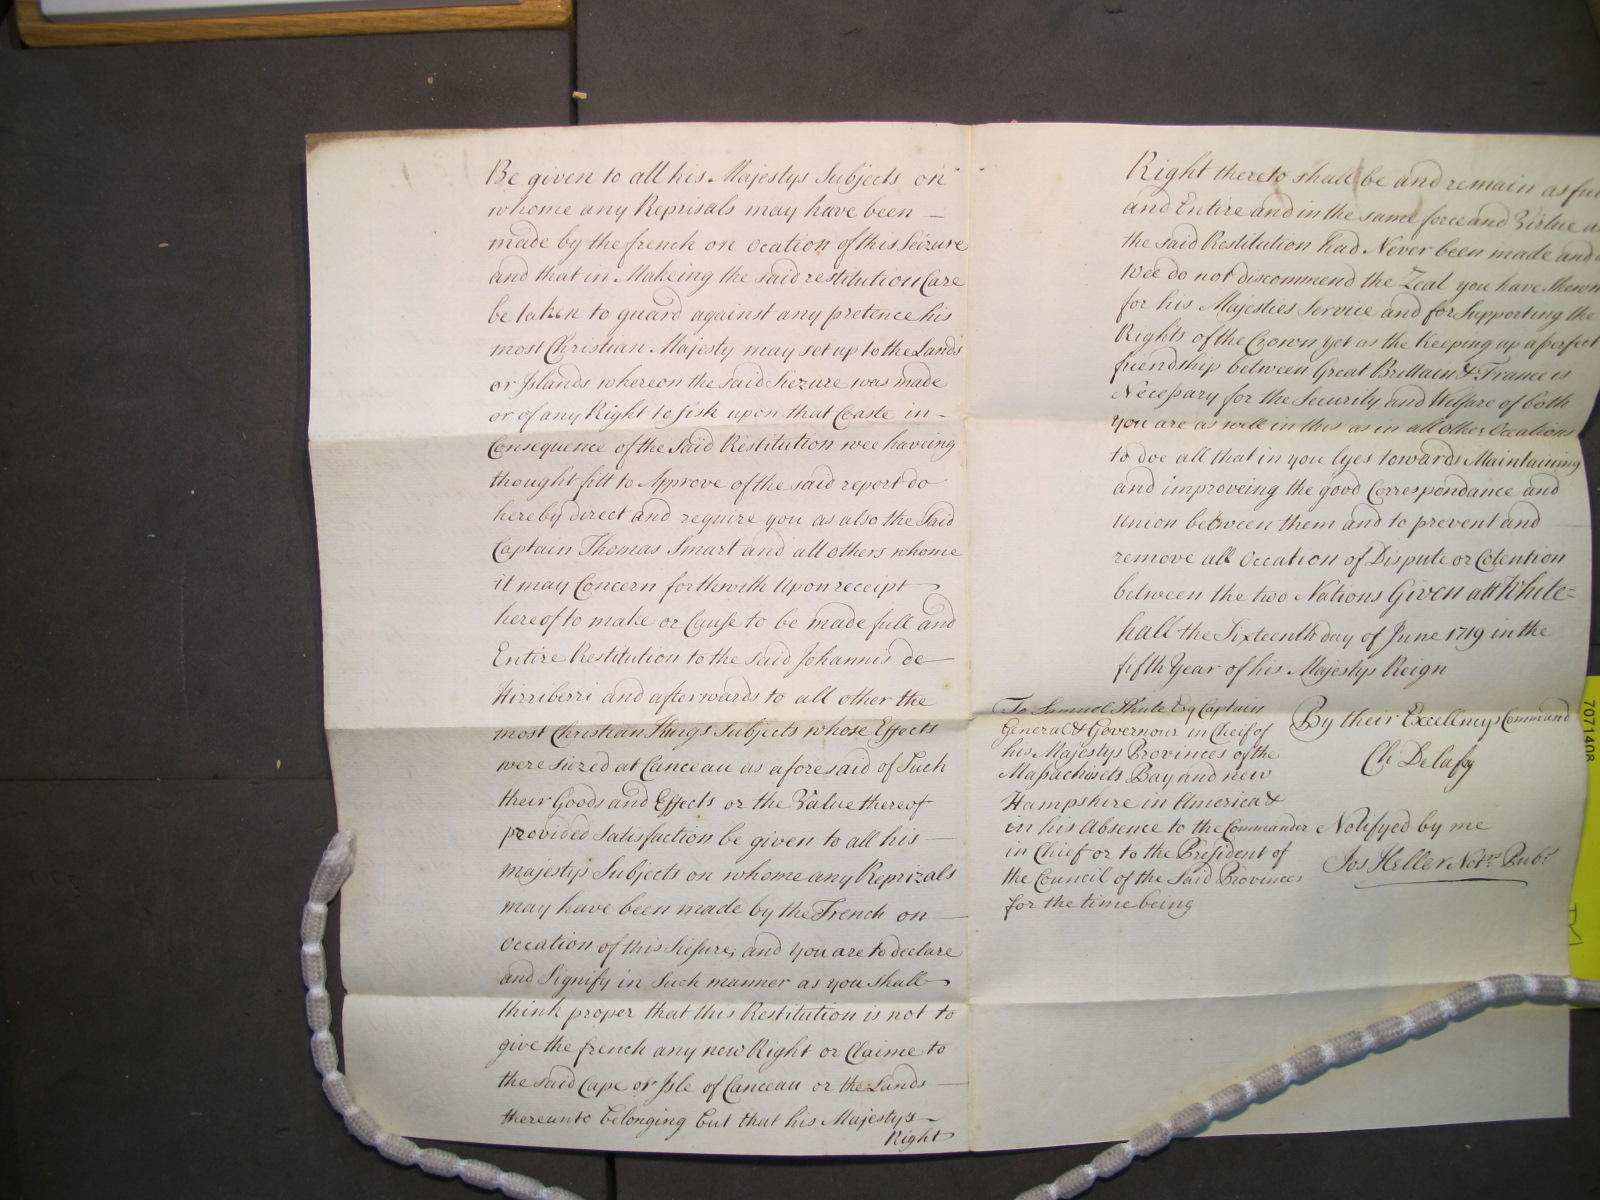 Be given to all his Majestys Subjects on
whome any Reprisals may have been
made by the french on ocation of this Seizure
and that in Makeing the said restitution Care
be taken to guard against any pretence his
most Christian Majesty may set up to the Lands
or Islands whereon the said Siezure was made
or of any Right to fish upon that Coaste in
Consequence of the Said Restitution wee haveing
thought fitt to Approve of the said report do
hereby direct and require you as also the Said
Captain Thomas Smart and all others whome
it may Concern forthwith Upon receipt
hereof to make or Cause to be made full and
Entire Restitution to the said Johannis de
Hirriberri and afterwards to all other the
most Christian Kings Subjects whose Effects
were siezed at Canceau as aforesaid of Such
their Goods and Effects or the Value thereof
provided Satisfaction be given to all his
majestys Subjects on whome any Reprizals
may have been made by the French on
occation of this Siesure, and you are to declare
and Signify in Such manner as you Shall
think proper that this Restitution is not to
give the french any new Right or Claime to
the said Cape or Isle of Canceau or the Lands
thereunto belonging but that his Majestys
Right
Right thereto shall be and remain as
and Entire and in the same force and Virtue
the said Restitution had Never been made and
wee do not discommend the Zeal you have Shewn
for his Majesties Service and for Supporting the
Rights of the Crown yet as the Keeping up a perfect
friendship between Great Brittain & France is
Necessary for the Security and Welfare of both
you are as well in this as in all other Occations
to doe all that in you lyes towards Maintaining
and improveing the good Correspondance and
Union between them and to prevent and
remove all Occation of Dispute or Cotention
between the two Nations Given att White=
hall the Sixteenth day of June 1719 in the
fifth Year of his Majestys Reign
To Samuel Shute Esq Captain
General & Governour in Cheif of
his Majestys Provinces of the
Massachusets Bay and new
Hampshire in America &
in his Absence to the Commander
in Chief or to the President of
the Council of the Said Provinces
for the time being
By their Excellencys Command
Ch Delafay
Notifyed by me
Jos Hiller Notrs Pubs
7071408